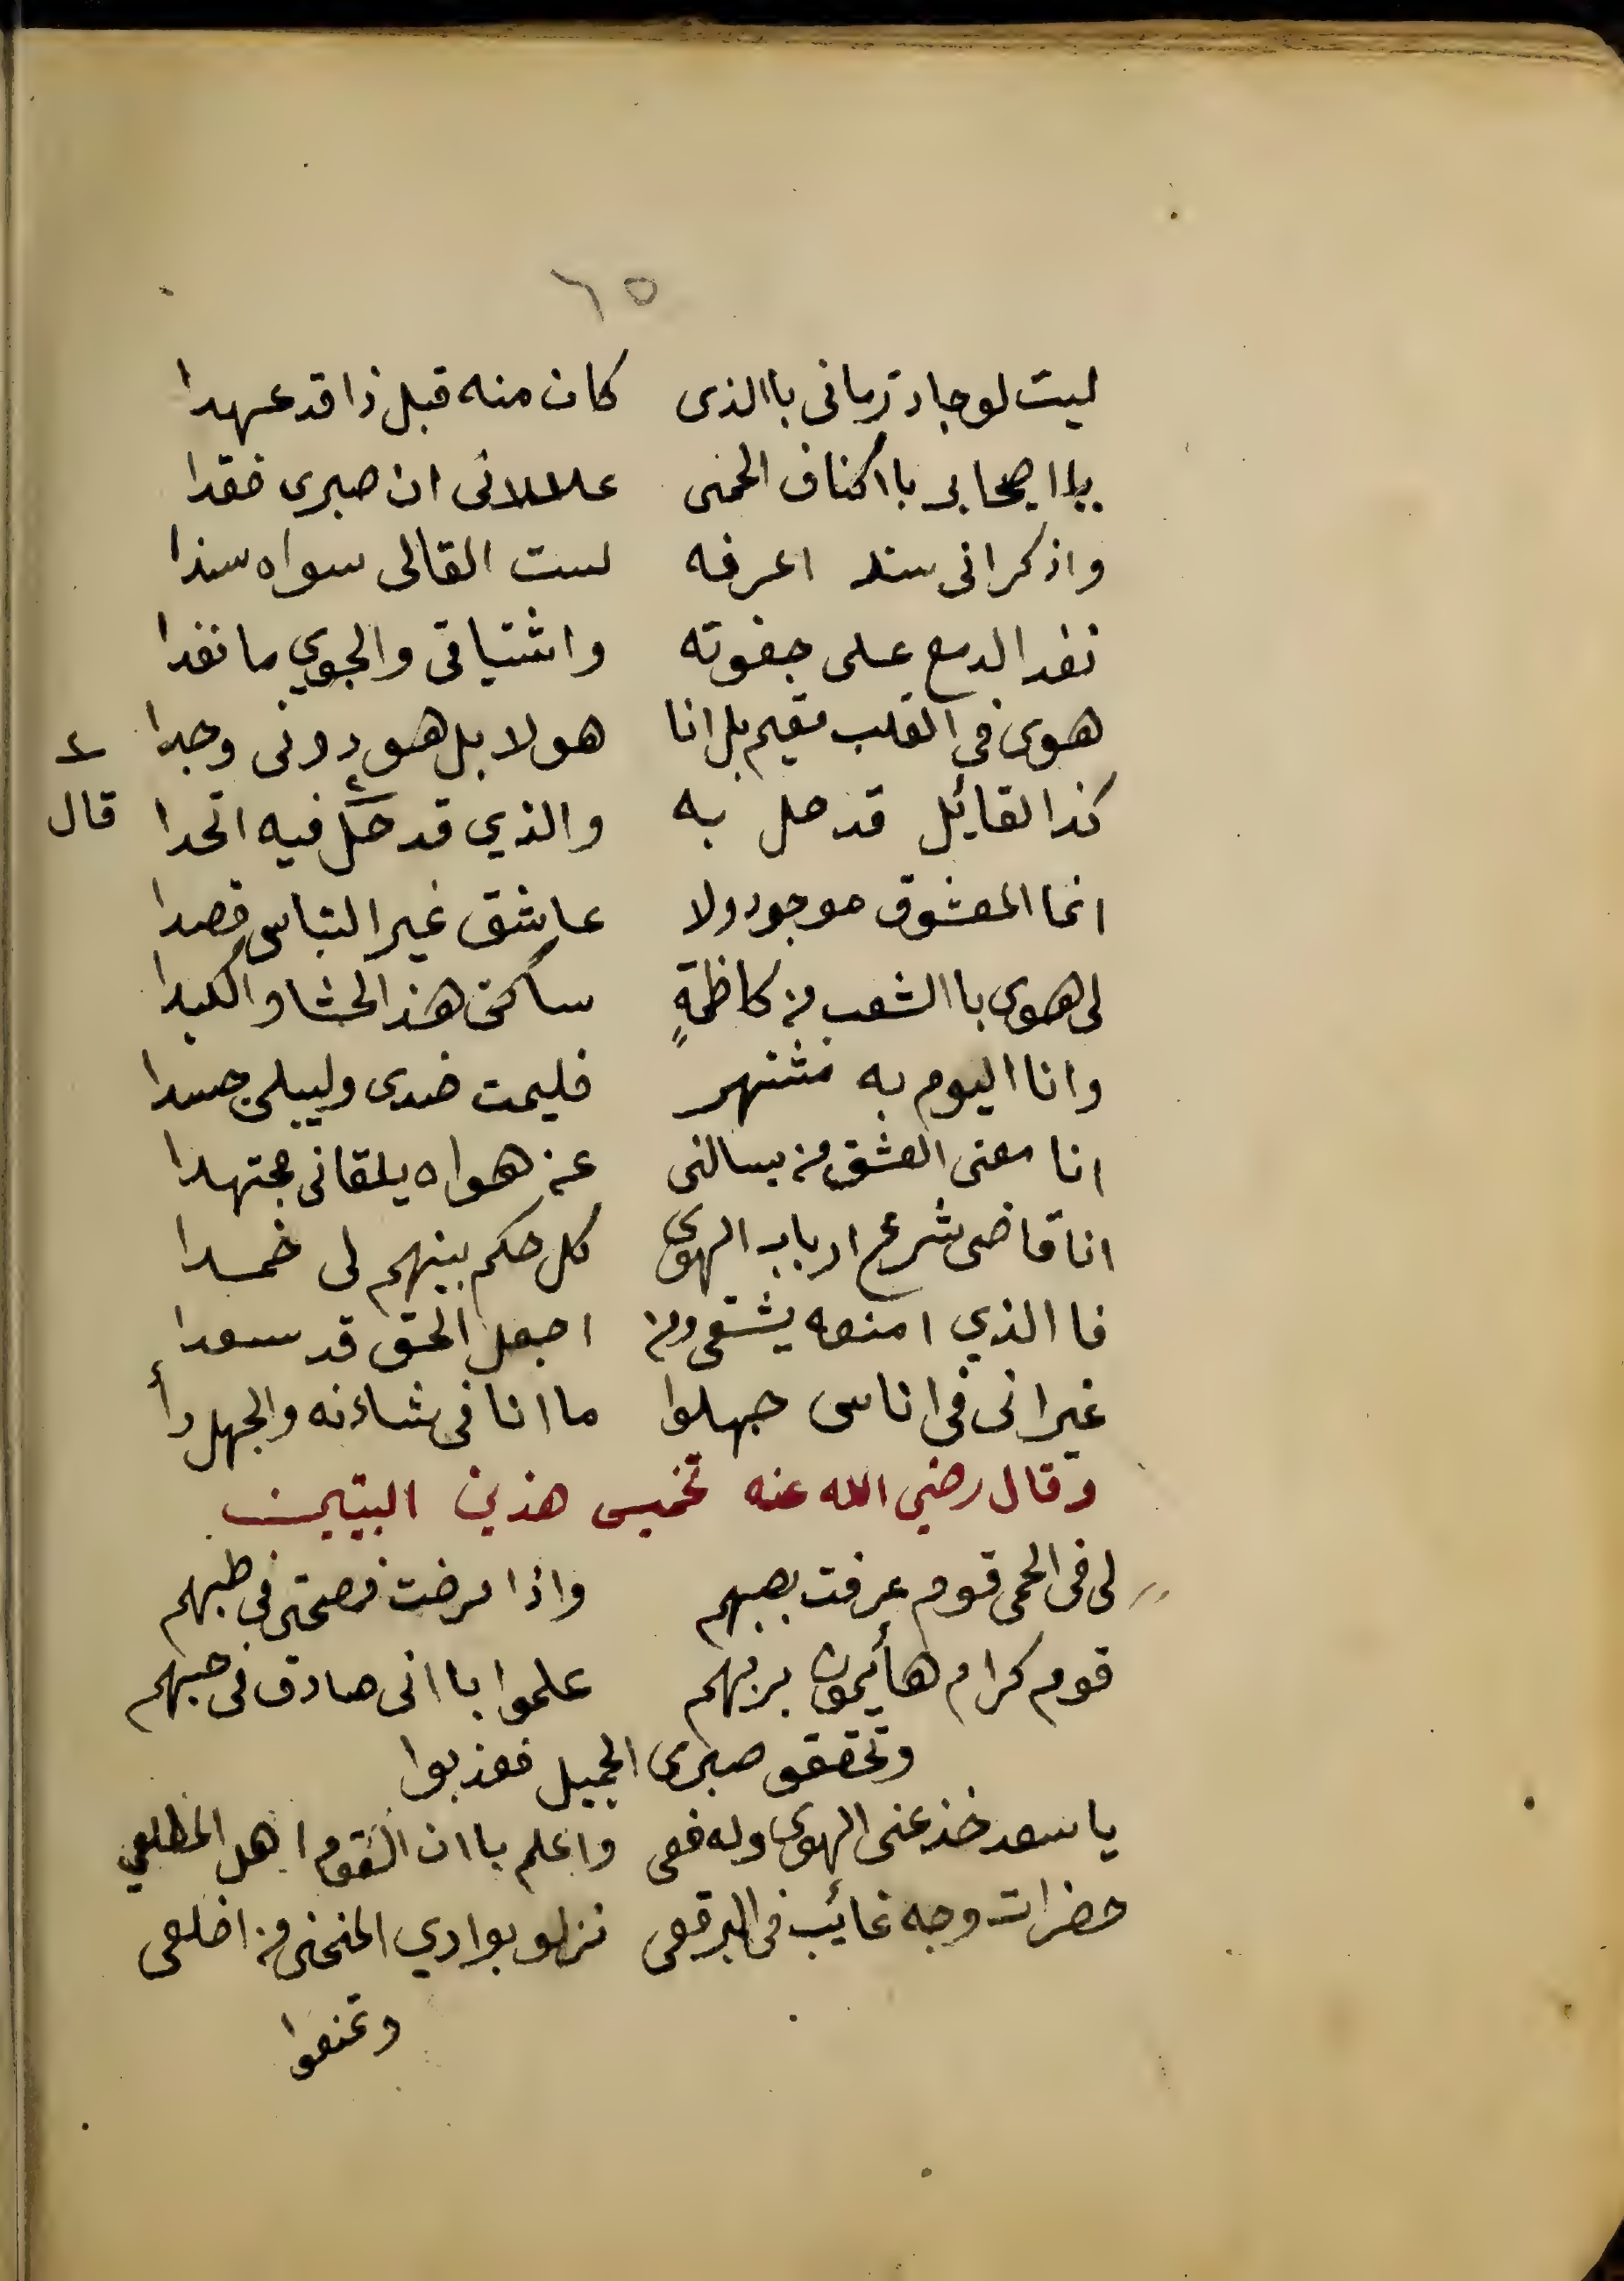 ٦٥
ليت لو جاد زمانى باالذى كان منه قبل ذا قد عهدا
يا اصحابى بااكناف الحمى عللانى ان صبرى فقدا
واذكرانى سند اعرفه لست القالى سواه سندا
نفد الدمع على جفوته واشتياقى والجوي ما نفدا
هو فى القلب مقيم بل انا هو لا بل هو دونى وجدا
كذا لقائل قد حل به والذي قد حل فيه اتحدا قال
انما المعشوق موجود ولا عاشق غير التباس قصدا
لى هوى باالشعب من كاظمةٍ ساكن هذ الحشا والكبدا
وانا اليوم به مشتهر فليمت ضدى وليبلى حسدا
انا معنى العشق من يسالنى عن هواه يلقانى مجتهدا
انا قاضى شرع ارباب الهوى كل حكم بينهم لى خمدا
فاالذي امنعه يشقى ومن اجعل الحق قد سعدا
غير انى فى اناس جهلوا ما انا فى شاءنه والجهل دأ
وقال رضي الله عنه تخميس هذين البيتين
لى فى الحمى قوم عرفت بصبهم واذا مرضت فصحتى فى طبهم
قوم كرام هائيمون بربهم علموا باانى صادق فى حبهم
وتحققو صبرى الجميل فعذبوا
يا سعد خذ عنى الهوى وله فعى واعلم باان القوم اهل المطلعي
حضرات وجه غائب فى البرقعى نزلو بوادي المنحنى من اضلعى
وتمنعوا